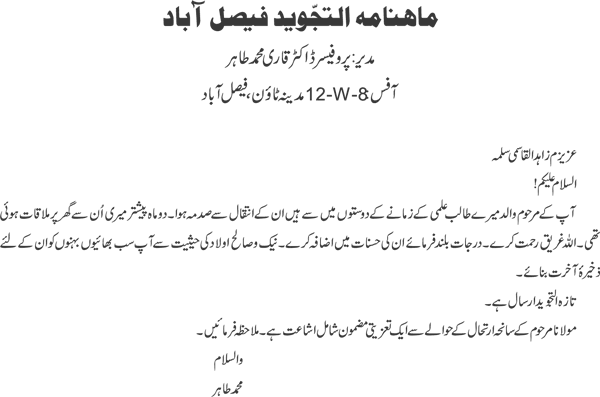 ماهنامه التجّوید فیصل آباد
مدیر: پروفیسر ڈاکٹر قاری محمد طاہر
آفس:8-W-12 مدینہ ٹاؤن، فیصل آباد
عزیزم زاہد القاسمی سلمہ
السلام علیکم!
آپ کے مرحوم والد میرے طالب علمی کے زمانے کے دوستوں میں سے ہیں ان کے انتقال سے صدمہ ہوا۔ دو ماہ پیشتر میری اُن سے گھر پر ملاقات ہوئی
تھی۔ اللہ غریق رحمت کرے۔ درجات بلند فرمائے ان کی حسنات میں اضافہ کرے۔ نیک و صالح اولاد کی حیثیت سے آپ سب بھائیوں بہنوں کو ان کے لئے
ذخیرۂ آخرت بنائے۔
تازہ التجوید ارسال ہے۔
مولانا مرحوم کے سانحہ ارتحال کے حوالے سے ایک تعزیتی مضمون شامل اشاعت ہے۔ ملاحظہ فرمائیں۔
والسلام
محمد طاہر